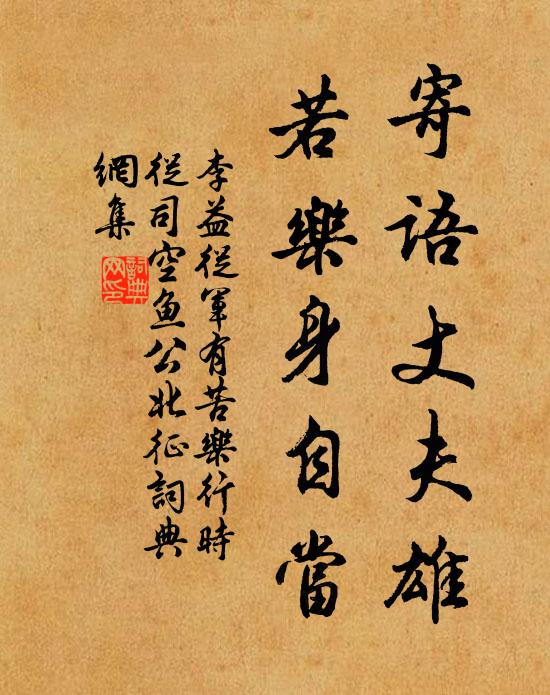 寄語丈夫雄
若樂身自當
李益從軍有苦樂行時
從司空魚公北征詞典
網集
詞典
网印